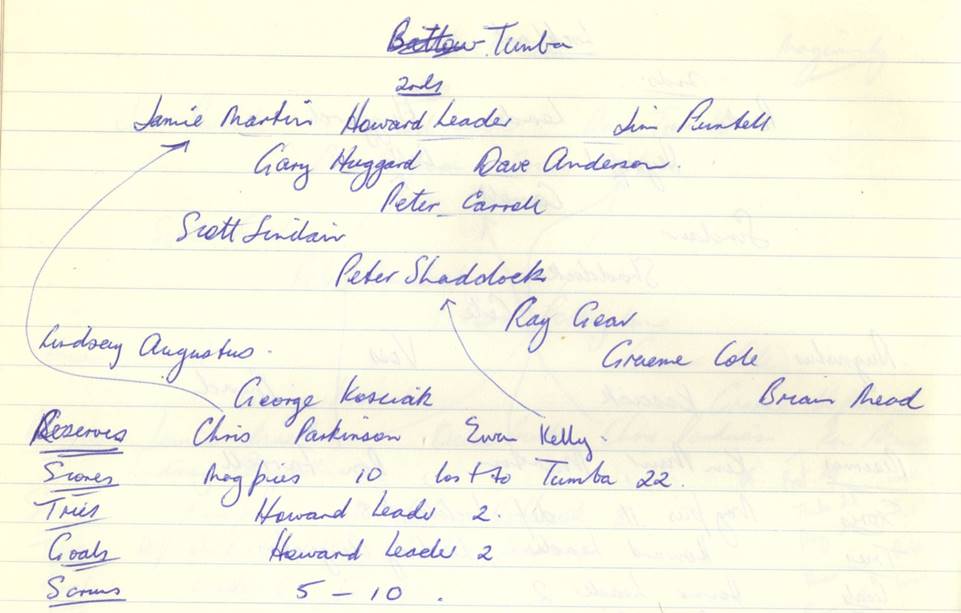 Batlow Tumba
2nds
Jamie Martin Howard Leader Jim Purtell
Gary Huggard Dave Anderson.
Peter Carroll
Scott Sinclair
Peter Shaddock
Ray Gear
Lindsay Augustus.
Graeme Cole
George Kosciak Brian Mead
Reserves Chris Parkinson, Ewan Kelly.
Scores Magpies 10 lost to Tumba 22.
Tries Howard Leader 2.
Goals Howard Leader 2
Scrums 5 - 10.